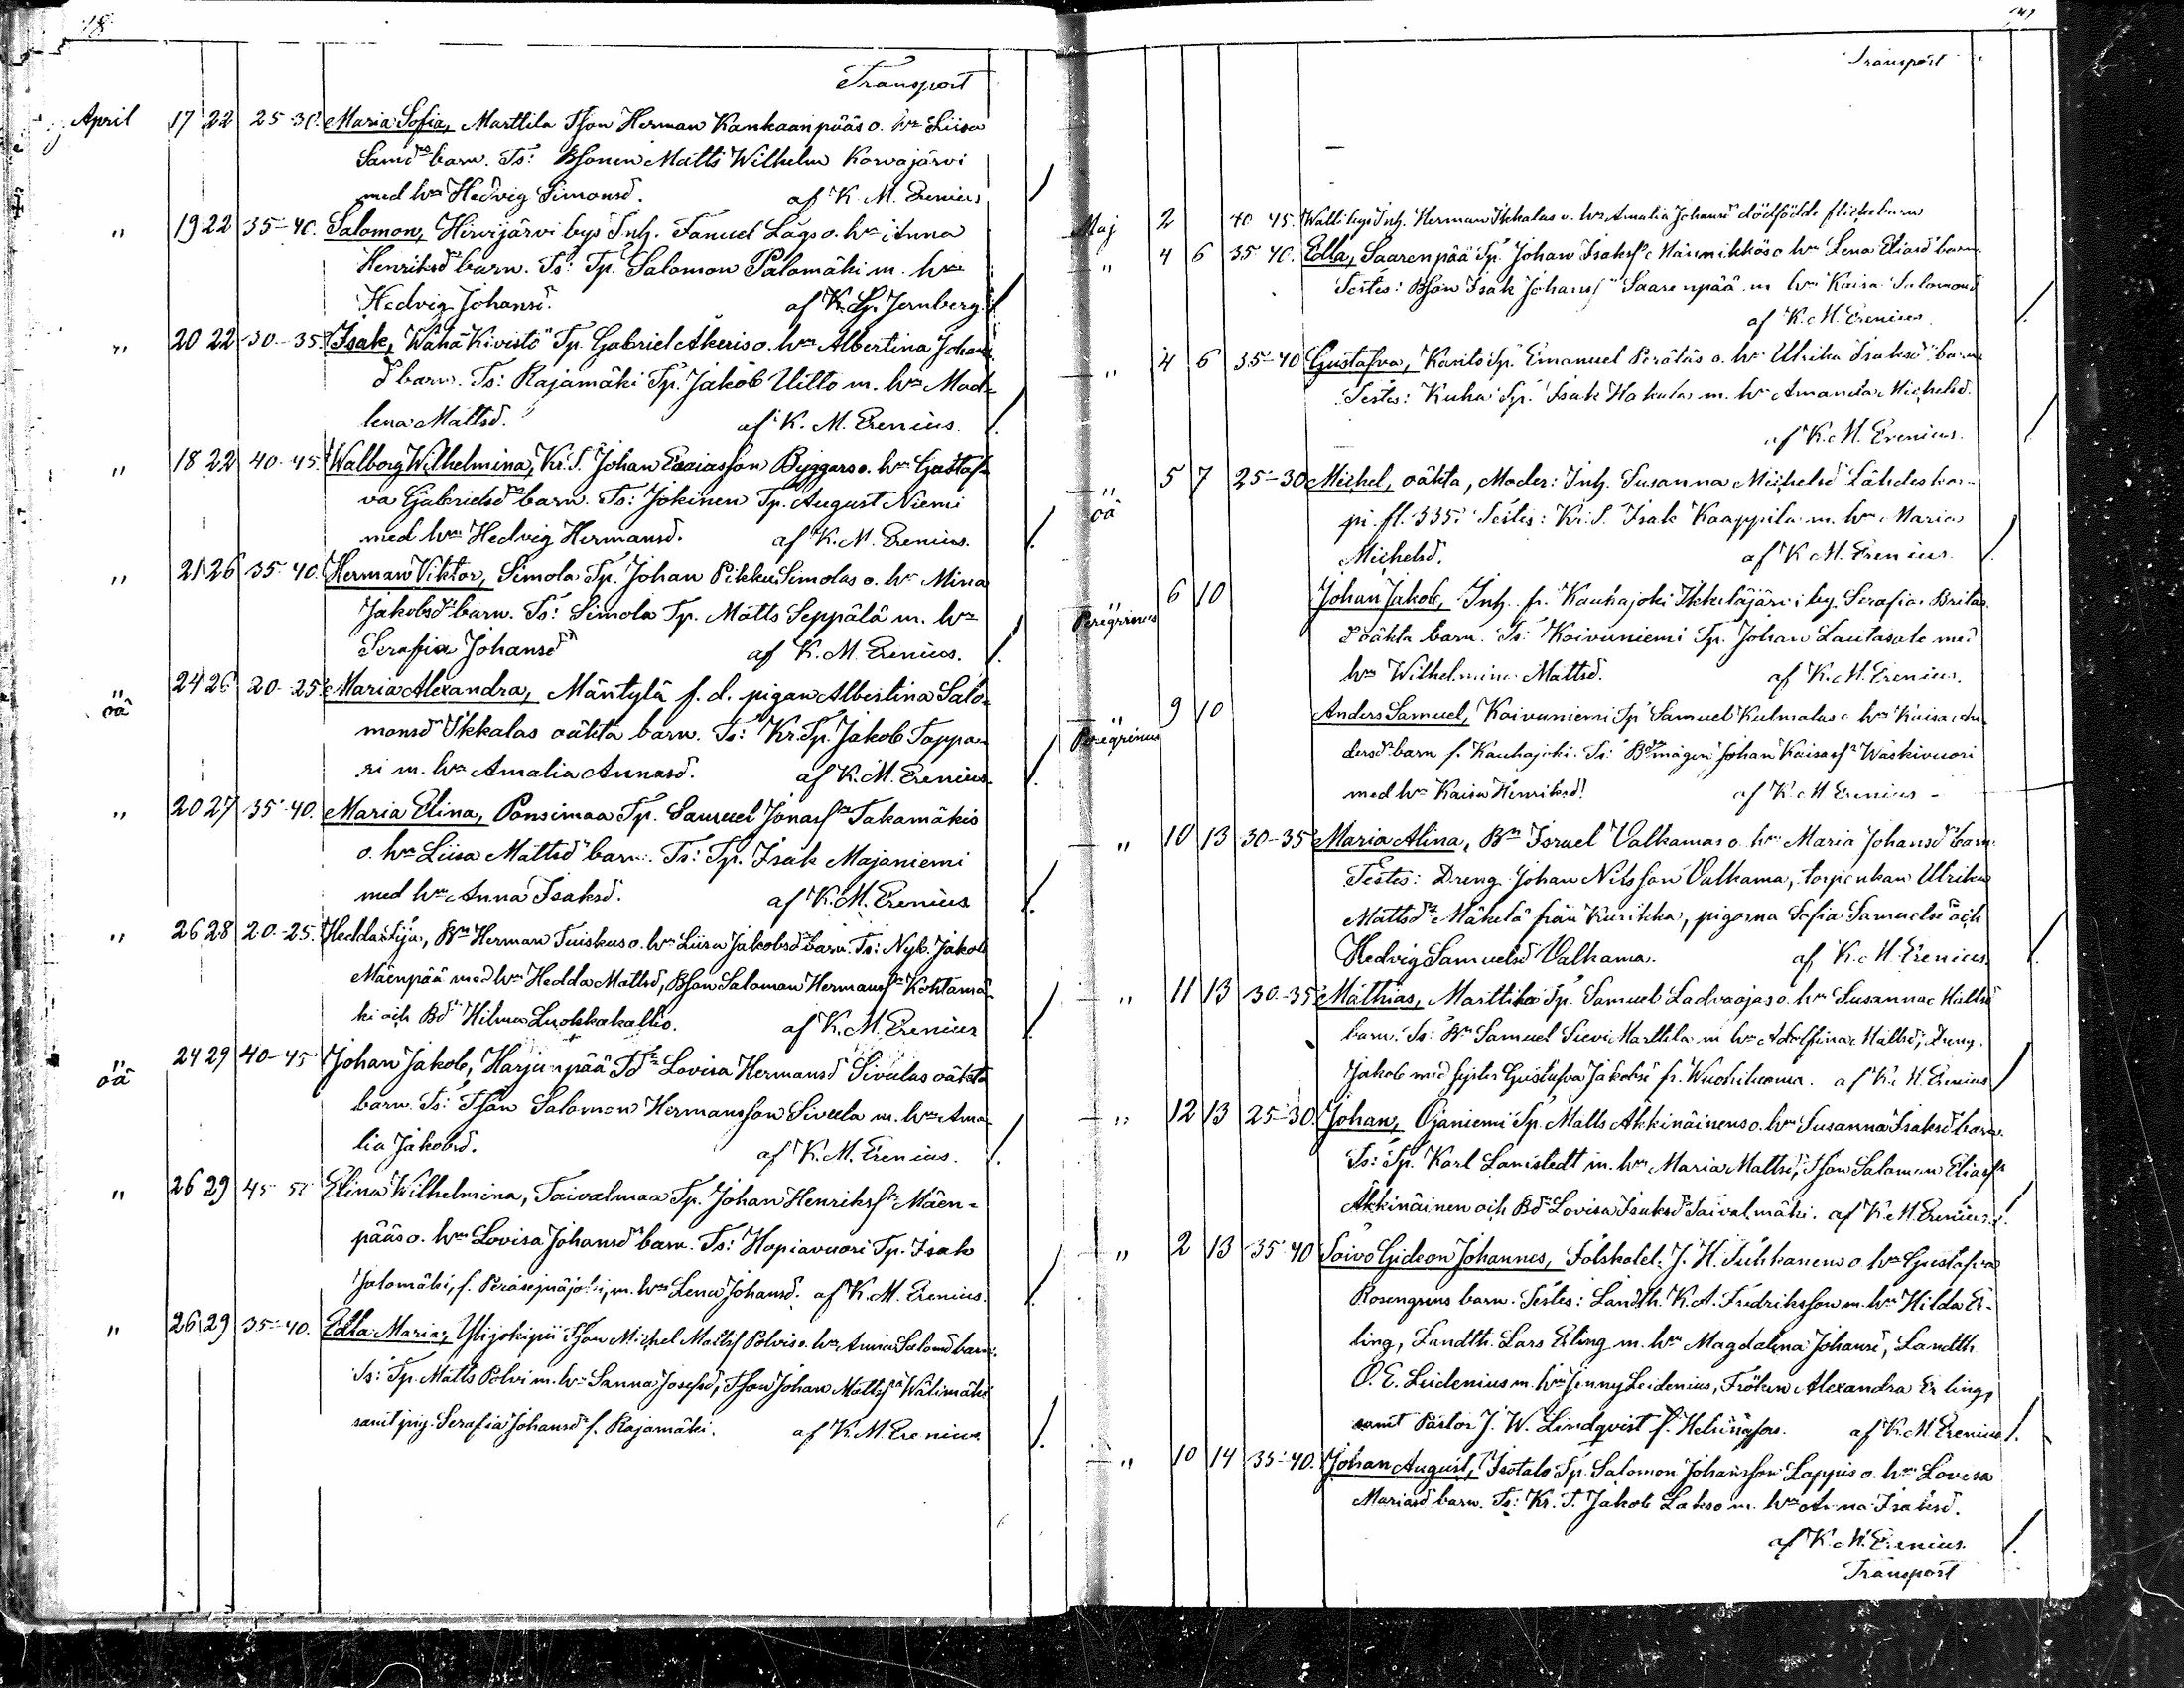 18
Transport
April 17 22 25-30. Maria Sofia, Marttila Tson Herman Kankaanpääs o. hn Liisa
Samd barn. Ts: Bsonen Matts Wilhelm Korvajärvi
med hn Hedvig Simonsd. af K. M. Erenius
" 19 22 35-40. Salomon, Hirvijärvi bys Inh. Fanuel Lags o. hn Anna
Henriksd barn. Ts: Tp. Salomon Palomäki m. hn
Hedvig Johansd. af K. Jernberg.
" 20 22 30-35. Isak, Wähä Kivistö Tp. Gabriel Akeris o. hn Albertina Johans
d barn. Ts: Rajamäki Tp. Jakob Uitto m. hn Mad-
lena Mattsd. af K. M. Erenius.
" 18 22 40-45. Walborg Wilhelmina, Kr. T. Johan Esaiasson Byggars o. hn Gustaf-
va Gabrielsd barn. Ts: Jokinen Tp. August Niemi
med hn Hedvig Hermansd. af K. M. Erenius.
" 21 26 35-40. Herman Viktor, Simola Tp. Johan Pikku Simolas o. hn Mina
Jakobsd barn. Ts: Simola Tp. Matts Seppälä m. hn
Serafia Johansd af K. M. Erenius.
" oä 24 26 20-25. Maria Alexandra, Mäntylä f. d. pigan Albertina Salo-
monsd Ikkalas oäkta barn. Ts: Kr. Tp. Jakob Toppa-
ri m. hn Amalia Annasd. af K. M. Erenius.
" 20 27 35-40. Maria Elina, Ponsimaa Tp. Samuel Jonass Takamäkis
o. hn Liisa Mattsd barn. Ts: Tp. Isak Majaniemi
med hn Anna Isaksd. af K. M. Erenius
" 26 28 20-25. Hedda Sifia, Bn Herman Tuiskus o. hn Liisa Jakobsd barn. Ts: Nyb. Jakob
Mäenpää med hn Hedda Mattsd, Bson Salomon Hermanss Kohtamä-
ki och Bd Hilma Luokkakallio. af K. M. Erenius
" oä 24 29 40-45 Johan Jakob, Harjunpää Td Lovisa Hermansd Sivulas oäkta
barn. Ts: Tson Salomon Hermansson Sivula m. hn Ama-
lia Jakobsd. af K. M. Erenius.
" 26 29 45 Elina Wilhelmina, Taivalmaa Tp. Johan Henrikss Mäen-
pääs o. hn Lovisa Johansd barn. Ts: Hopiavuori Tp. Isak
Jalomäki, f. Peräseinäjoki, m. hn Lena Johansd. af K. M. Erenius.
" 26 29 35-40. Edla Maria, Ylijokipii Tson Michel Mattss Polvis o. hn Anna Salomd barn.
Ts: Tp. Matts Polvi m. hn Sanna Josefsd, Tson Johan Mattss Wälimäki
samt pig. Serafia Johansd f. Rajamäki. af K. M. Erenius
Transport
Maj 2 40 45. Walli bys Inh. Herman Ikkalas o. hn Amalia Johansd dödfödde flickebarn
" 4 6 35 40. Edla, Saarenpää Tp. Johan Isakss Männikkös o hn Lena Eliasd barn.
Testes: Bson Isak Johanss Saarenpää m hn Kaisa Salomonsd
af K. M. Erenius.
" 4 6 35-40 Gustafva, Kanto Tp. Emanuel Perätäs o. hn Ulrika Isaksd barn
Testes: Kuha Tp. Isak Hakala m. hn Amanda Michelsd.
af K. M. Erenius.
" oä 5 7 25-30 Michel, oäkta, Moder: Inh. Susanna Michelsd Lähdeskor-
pi. fl. 335. Testes: Kr. T. Isak Kaappila m. hn Maria
Michelsd. af K M. Erenius.
Peregrinus 6 10 Johan Jakob, Inh. fr. Kauhajoki Ikkeläjärvi by Serafia Britas
d oäkta barn. Ts: Koivuniemi Tp. Johan Lautasalo med
hn Wilhelmina Mattsd. af K. M. Erenius.
" Peregrinus 9 10 Anders Samuel, Koivuniemi Tp Samuel Kulmalas o hn Kaisa An-
dersd barn f. Kauhajoki. Ts: Bmågen Johan Kaisass Waskivuori
med hn Kaisa Henriksd. af K. M. Erenius
" 10 13 30-35 Maria Alina, Bn Israel Valkamas o. hn Maria Johansd barn.
Testes: Dreng Johan Nilsson Valkama, torpenkan Ulrika
Mattsd Mäkelä från Kurikka, pigorna Sofia Samuelsd och
Hedvig Samuelsd Valkama. af K. M. Erenius.
" 11 13 30-35 Mathias, Marttila Tp. Samuel Ladvaojas o. hn Susanna Mattsd
barn. Ts: Bn Samuel Sievi Marttila m hn Adolfina Mattsd, Dreng.
Jakob med syster Gustafva Jakobsd fr. af K. M. Erenius
" 12 13 25-30. Johan, Ojaniemi Tp. Matts Akkinäinens o. hn Susanna Isaksd barn.
Ts: Tp. Karl Lanistedt m. hn Maria Mattsd, Tson Salomon Eliass
Akkinäinen och Bd Lovisa Isaksd Taivalmäki. af K. M. Erenius.
" 2 13 35 40 Toivo Gideon Johannes, Folkskolel. J. H. Tuhkanens o hn Gustafva
Rosengrens barn. Testes: Landth. K. A. Fredriksson m. hn Hilda Er-
ling, Landth. Lars Erling m. hn Magdalena Johansd, Landth.
O. E. Leidenius m. hn Jenny Leidenius, Fröken Alexandra Erling,
samt Pastor J. W. Lindqvist f. Helsingfors. af K. M. Erenius
" 10 14 35-40. Johan August, Isotalo Tp. Salomon Johansson Lappis o. hn Lovisa
Mariasd barn. Ts: Kr. T. Jakob Lakso m. hn Anna Isaksd.
af K. M. Erenius.
Transport